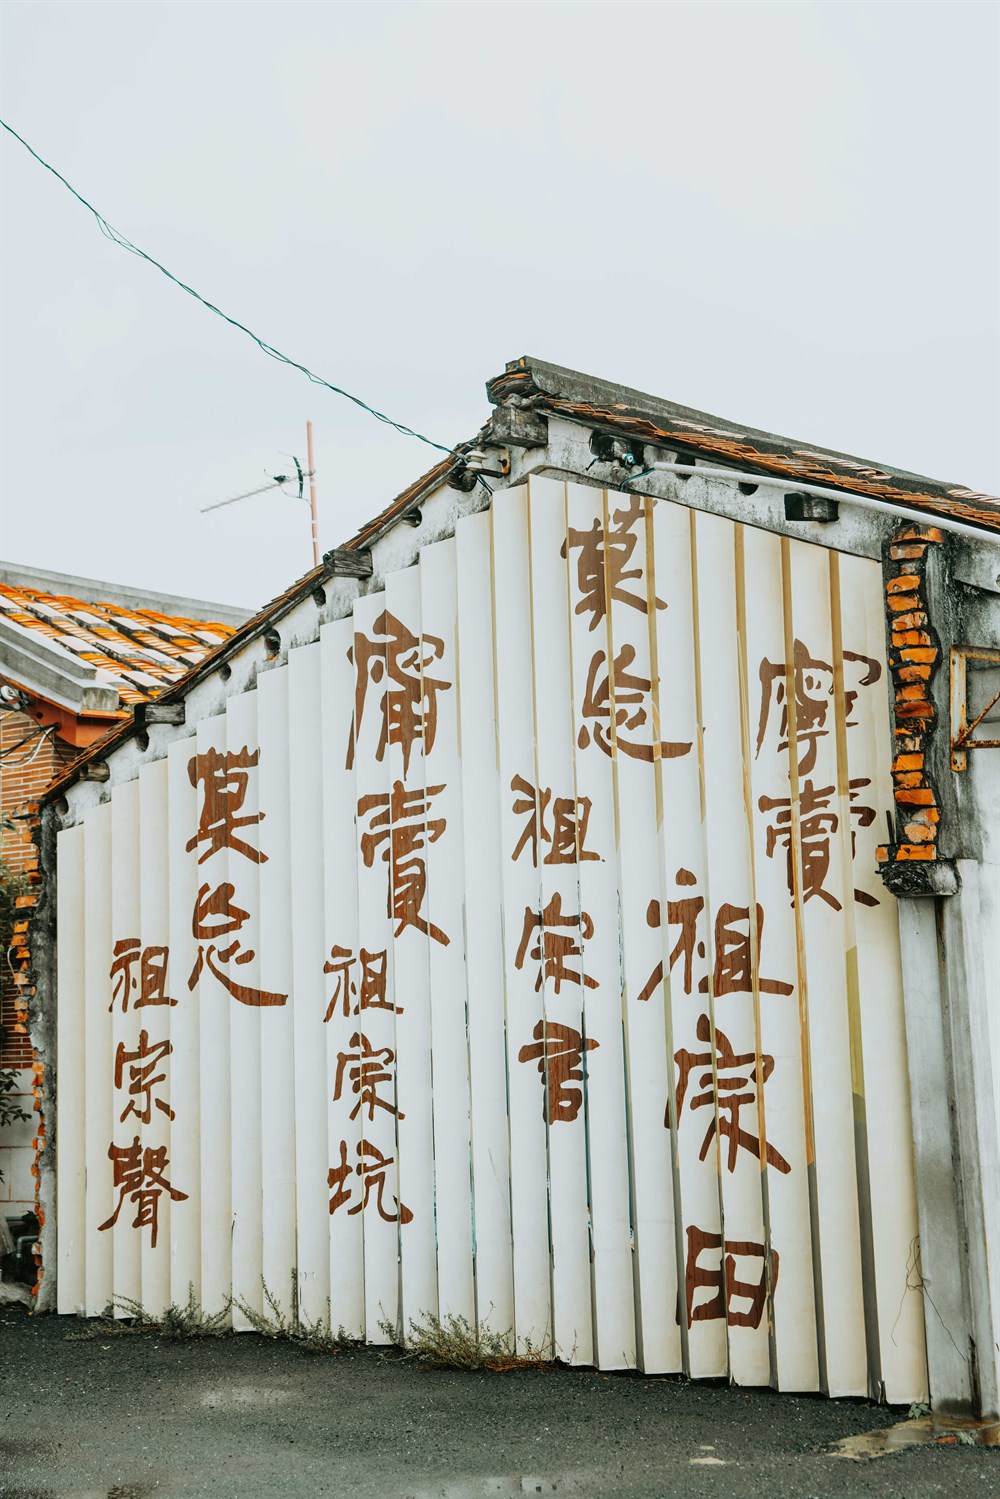 寧賣祖宗田
莫忘祖宗書
寧賣祖宗坑
莫忘祖宗聲